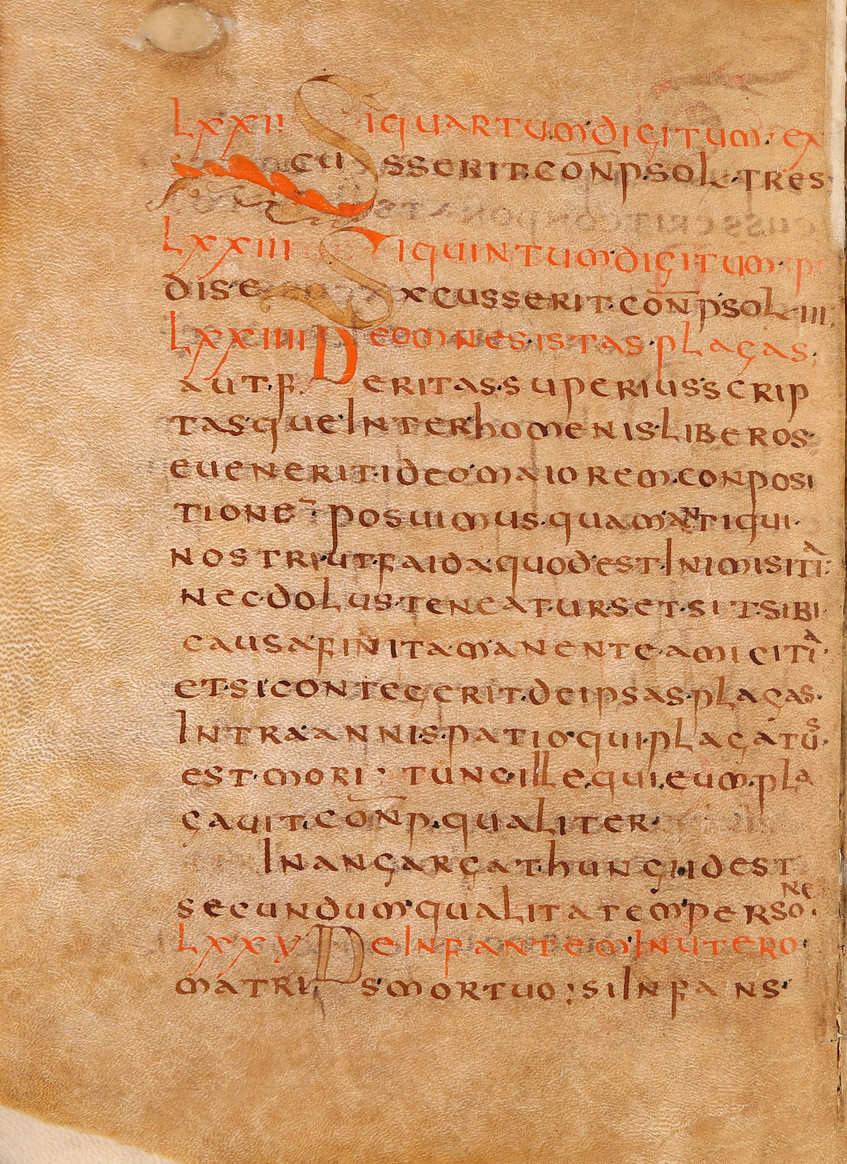 LXXII Si quartum digitum ex
cusserit conp sol tres
LXXIII Si quintum digitum pe
dis excusserit conp sol III
LXXIIII De omnes istas plagas
aut feritas superius scrip
tas que inter homenis liberos
evenerit ideo maiorem conposi
tionē posuimus quam antiqui
nostri ut faida quod est inimisitia
nec dolus teneatur set sit sibi
causa finita manente amicitia
et si contegerit de ipsas plagas
intra anni spatio qui plagatus
est mori tunc ille qui eum pla
gavit conp qualiter
in angargathung id est
secundum qualitatem persone
LXXV De infantem in utero
matris mortuo si infans